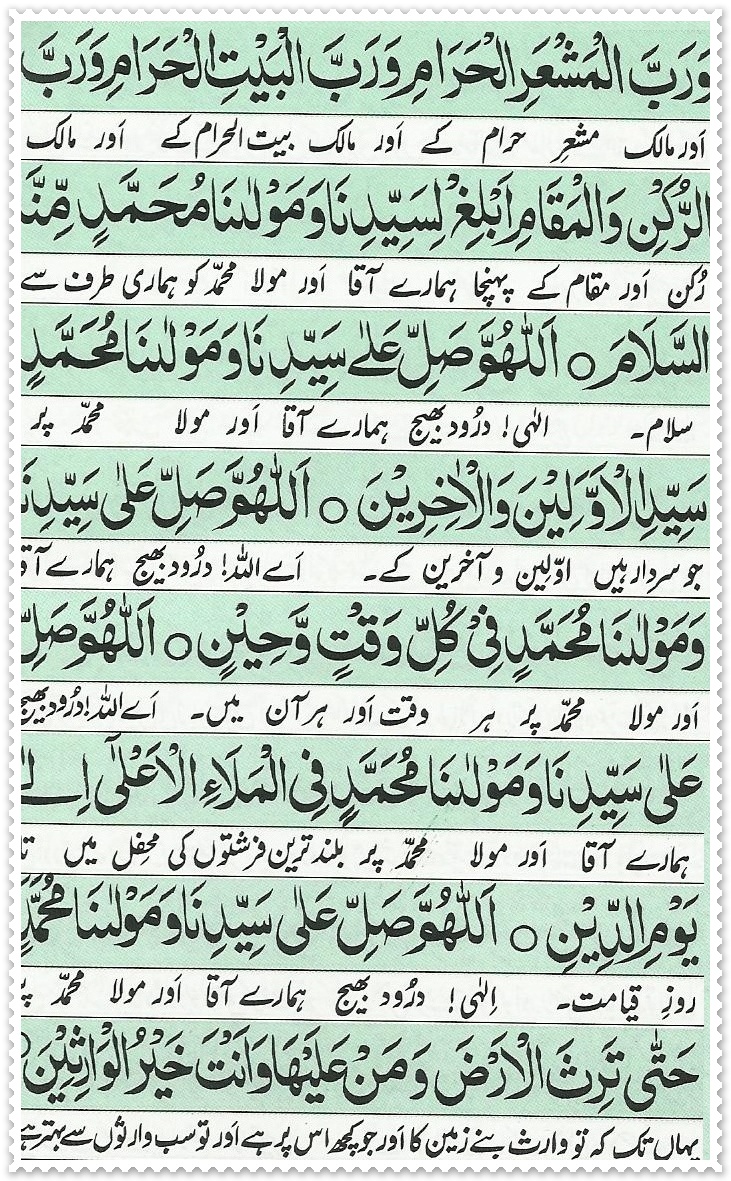 وَرَبَّ الْمَشْعَرِ الْحَرَامِ وَرَبَّ الْبَيْتِ الْحَرَامِ وَرَبَّ
اَور مالک مشعرِ حرام کے اَور مالک بیت الحرام کے اَور مالک
الرُّكْنِ وَالْمَقَامِ اَبْلِغْ لِسَيِّدِنَا وَمَوْلٰىنَا مُحَمَّدٍ مِّنَّا
رُکن اَور مقام کے پہنچا ہمارے آقا اَور مولا محمّد کو ہماری طرف سے
السَّلَامَ ○ اَللّٰهُمَّ صَلِّ عَلٰى سَيِّدِنَا وَمَوْلٰىنَا مُحَمَّدٍ
سلام۔ الٰہی! درُود بھیج ہمارے آقا اَور مولا محمّد پر
سَيِّدِ الْاَوَّلِيْنَ وَالْاٰخِرِيْنَ ○ اَللّٰهُمَّ صَلِّ عَلٰى سَيِّدِنَا
جو سردار ہیں اوّلین و آخرین کے۔ اَے اللہ! درُود بھیج ہمارے آقا
وَمَوْلٰىنَا مُحَمَّدٍ فِيْ كُلِّ وَقْتٍ وَّحِيْنٍ ○ اَللّٰهُمَّ صَلِّ
اَور مولا محمّد پر ہر وقت اَور ہر آن میں۔ اَے اللہ! درُود بھیج
عَلٰى سَيِّدِنَا وَمَوْلٰىنَا مُحَمَّدٍ فِي الْمَلَاءِ الْاَعْلٰٓى اِلٰى
ہمارے آقا اَور مولا محمّد پر بلند ترین فرشتوں کی محفِل میں
يَوْمِ الدِّيْنِ ○ اَللّٰهُمَّ صَلِّ عَلٰى سَيِّدِنَا وَمَوْلٰىنَا مُحَمَّدٍ
روزِ قیامت۔ اِلٰہی! درُود بھیج ہمارے آقا اَور مولا محمّد پر
حَتّٰى تَرِثَ الْاَرْضَ وَمَنْ عَلَيْهَا وَاَنْتَ خَيْرُ الْوَارِثِيْنَ ○
یہاں تک کہ تو وارث بنے زمین کا اَور جو کچھ اس پر ہے اَور تو سب وارثوں سے بہتر ہے